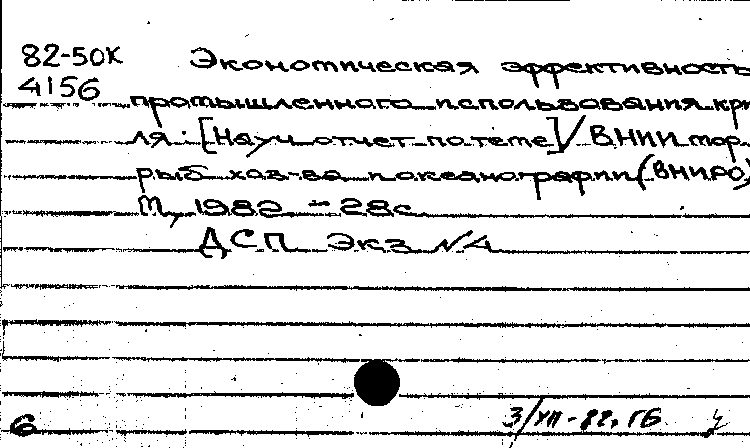 82-50К Экономическая эффективность
4156 промышленного использования кри
ля: [Науч. отчет по теме] / ВНИИ мор.
рыб. хоз-ва и океанографии (ВНИРО)
М., 1982 - 28с.
ДСП Экз №4
3/VII-82г. ГБ
6